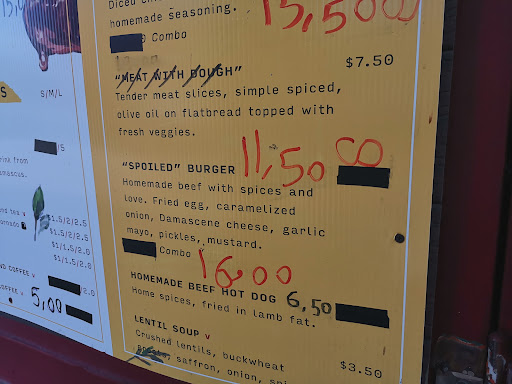 15,50
homemade seasoning.
Combo
"MEAT WITH DOUGH" $7.50
Tender meat slices, simple spiced,
olive oil on flatbread topped with
fresh veggies.
"SPOILED" BURGER 11,50
Homemade beef with spices and
love. Fried egg, caramelized
onion, Damascene cheese, garlic
mayo, pickles, mustard.
Combo 16.00
HOMEMADE BEEF HOT DOG 6,50
Home spices, fried in lamb fat.
LENTIL SOUP v $3.50
Crushed lentils, buckwheat
saffron, onion,
S/M/L
/5
rink from
amascus.
$1.5/2/2.5
$1/1.5/2.0
$1/1.5/2.0
$1/1.5/2.0
COFFEE v /2.0
COFFEE 5,00